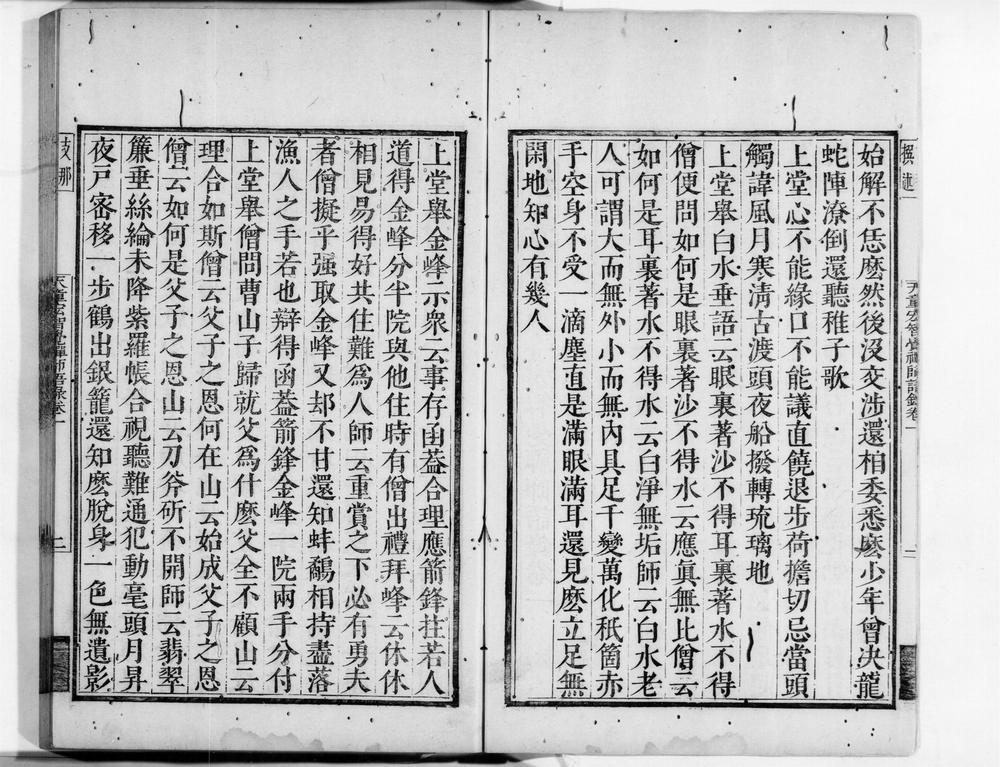 始解不恁麽然後沒交涉還相委悉麽少年曾决龍
蛇陣潦倒還聽稚子歌
上堂心不能緣口不能議直饒退步荷擔切忌當頭
觸諱風月寒淸古渡頭夜船撥轉琉璃地
上堂舉白水垂語云眼裏著沙不得耳裏著水不得
僧便問如何是眼裏著沙不得水云應眞無比僧云
如何是耳裏著水不得水云白淨無垢師云白水老
人可謂大而無外小而無內具足千變萬化秖箇赤
手空身不受一滴塵直是滿眼滿耳還見麽立足無
閑地知心有幾人
天童宏智覺禪師語錄卷一
二
上堂舉金峰示衆云事存函葢合理應箭鋒拄若人
道得金峰分半院與他住時有僧出禮拜峰云休休
相見易得好共住難爲人師云重賞之下必有勇夫
者僧擬乎强取金峰又却不甘還知蚌鷸相持盡落
漁人之手若也辯得函葢箭鋒金峰一院兩手分付
上堂舉僧問曹山子歸就父爲什麽父全不顧山云
理合如斯僧云父子之恩何在山云始成父子之恩
僧云如何是父子之恩山云刀斧斫不開師云翡翠
簾垂絲綸未降紫羅帳合視聽難通犯動毫頭月昇
夜戸密移一步鶴出銀籠還知麽脫身一色無遺影
支那
天童宏智覺禪師語錄卷一
二